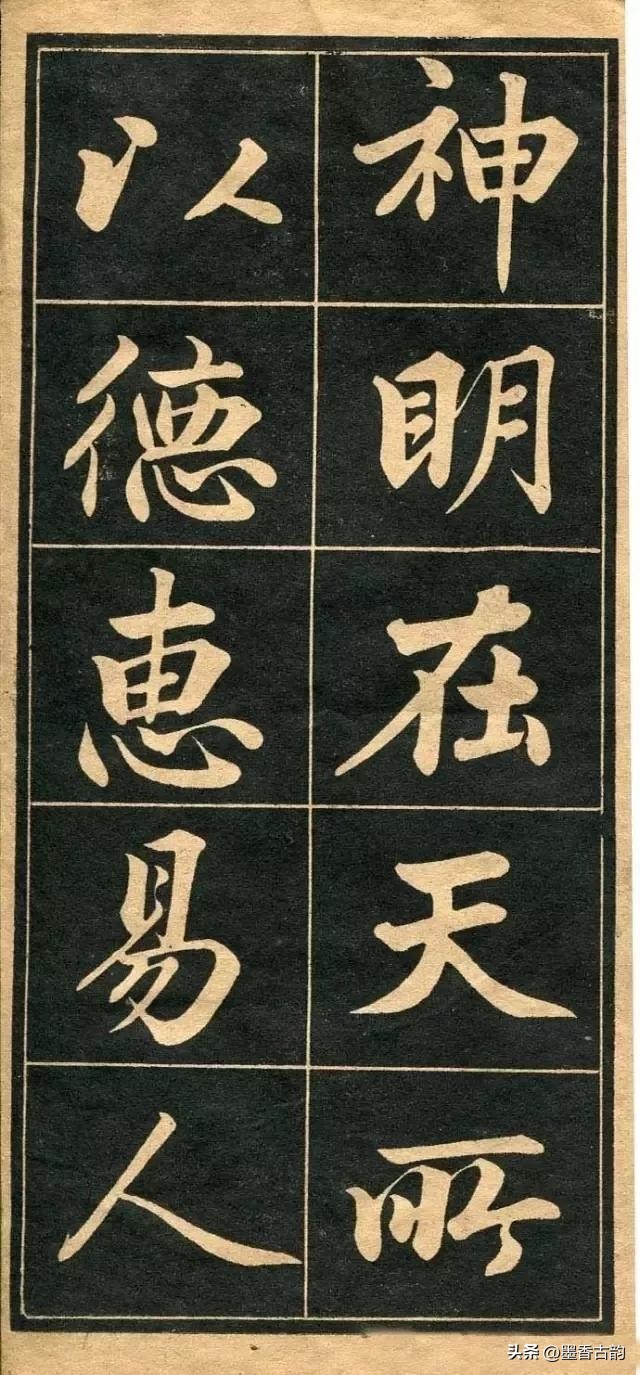 神明在天所
以德惠易人
头条 @墨香古韵